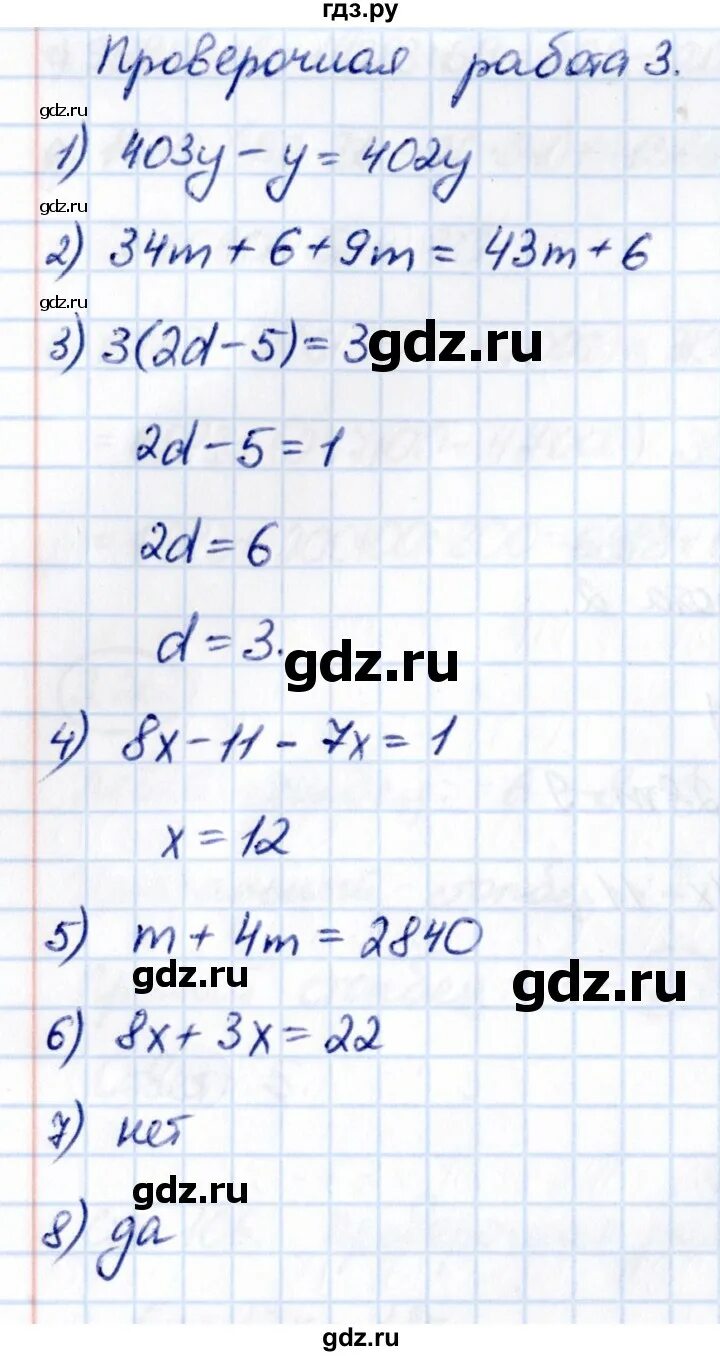 гдз.ру
Проверочная работа 3.
gdz.ru
1) 403y - y = 402y
gdz.ru
2) 34m + 6 + 9m = 43m + 6
gdz.ru
3) 3(2d - 5) = 3
gdz.ru
2d - 5 = 1
2d = 6
d = 3.
gdz.ru
4) 8x - 11 - 7x = 1
x = 12
5) m + 4m = 2840
gdz.ru
gdz.ru
6) 8x + 3x = 22
7) нет
gdz.ru
8) да
gdz.ru